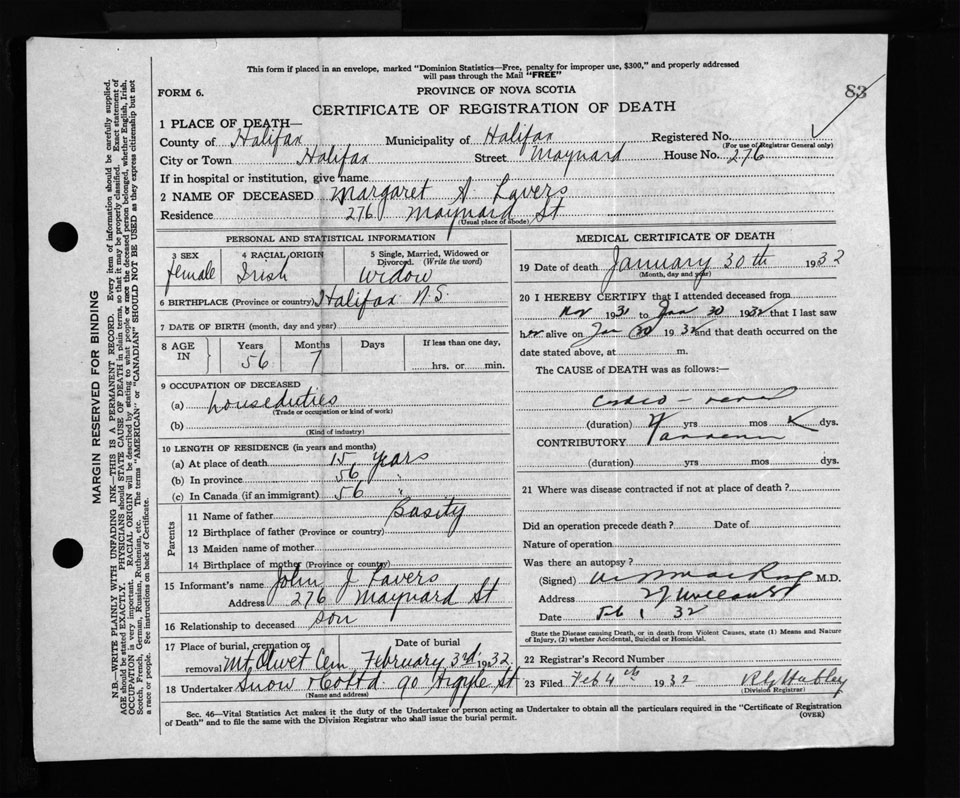 This form if placed in an envelope, marked "Dominion Statistics—Free, penalty for improper use, $300," and properly addressed
will pass through the Mail "FREE"
FORM 6.
PROVINCE OF NOVA SCOTIA
83
CERTIFICATE OF REGISTRATION OF DEATH
1 PLACE OF DEATH—
County of Halifax Municipality of Halifax Registered No.
(For use of Registrar General only)
City or Town Halifax Street Maynard House No. 276
If in hospital or institution, give name
2 NAME OF DECEASED Margaret A. Lavers
Residence 276 Maynard St
(Usual place of abode)
PERSONAL AND STATISTICAL INFORMATION
3 SEX 4 RACIAL ORIGIN 5 Single, Married, Widowed or
Divorced. (Write the word)
female Irish widow
6 BIRTHPLACE (Province or country) Halifax N.S.
7 DATE OF BIRTH (month, day and year)
8 AGE IN Years Months Days If less than one day,
56 7 hrs. or min.
9 OCCUPATION OF DECEASED
(a) houseduties
(Trade or occupation or kind of work)
(b)
(Kind of industry)
10 LENGTH OF RESIDENCE (in years and months)
(a) At place of death 15 years
(b) In province 56 "
(c) In Canada (if an immigrant) 56 "
Parents
11 Name of father Basity
12 Birthplace of father (Province or country)
13 Maiden name of mother
14 Birthplace of mother (Province or country)
15 Informant's name John J Lavers
Address 276 Maynard St
16 Relationship to deceased son
17 Place of burial, cremation or Date of burial
removal Mt Olivet Cem February 3rd 1932
18 Undertaker Snow & Co Ltd 90 Argyle St
(Name and address)
MEDICAL CERTIFICATE OF DEATH
19 Date of death January 30th 1932
(Month, day and year)
20 I HEREBY CERTIFY that I attended deceased from
Nov 1931 to Jan 30 1932 that I last saw
her alive on Jan 30 1932 and that death occurred on the
date stated above, at m.
The CAUSE of DEATH was as follows:—
Cardio - renal
(duration) yrs mos dys.
CONTRIBUTORY
(duration) yrs mos dys.
21 Where was disease contracted if not at place of death?
Did an operation precede death? Date of
Nature of operation
Was there an autopsy?
(Signed) M.D.
Address
Date Feb 1 32
State the Disease causing Death, or in death from Violent Causes, state (1) Means and Nature
of Injury, (2) whether Accidental, Suicidal or Homicidal.
22 Registrar's Record Number
23 Filed Feb 4th 1932
(Division Registrar)
Sec. 46—Vital Statistics Act makes it the duty of the Undertaker or person acting as Undertaker to obtain all the particulars required in the "Certificate of Registration
of Death" and to file the same with the Division Registrar who shall issue the burial permit. (OVER)
MARGIN RESERVED FOR BINDING
N.B.—WRITE PLAINLY WITH UNFADING INK—THIS IS A PERMANENT RECORD. Every item of information should be carefully supplied.
AGE should be stated EXACTLY. PHYSICIANS should STATE CAUSE OF DEATH in plain terms, so that it may be properly classified. Exact statement of
OCCUPATION is very important. RACIAL ORIGIN will be described by stating to what people or race the deceased person belonged, whether English, Irish,
Scotch, French, German, Russian, Ruthenian, etc. The terms "AMERICAN" or "CANADIAN" SHOULD NOT BE USED as they express citizenship but not
a race or people. See instructions on back of Certificate.